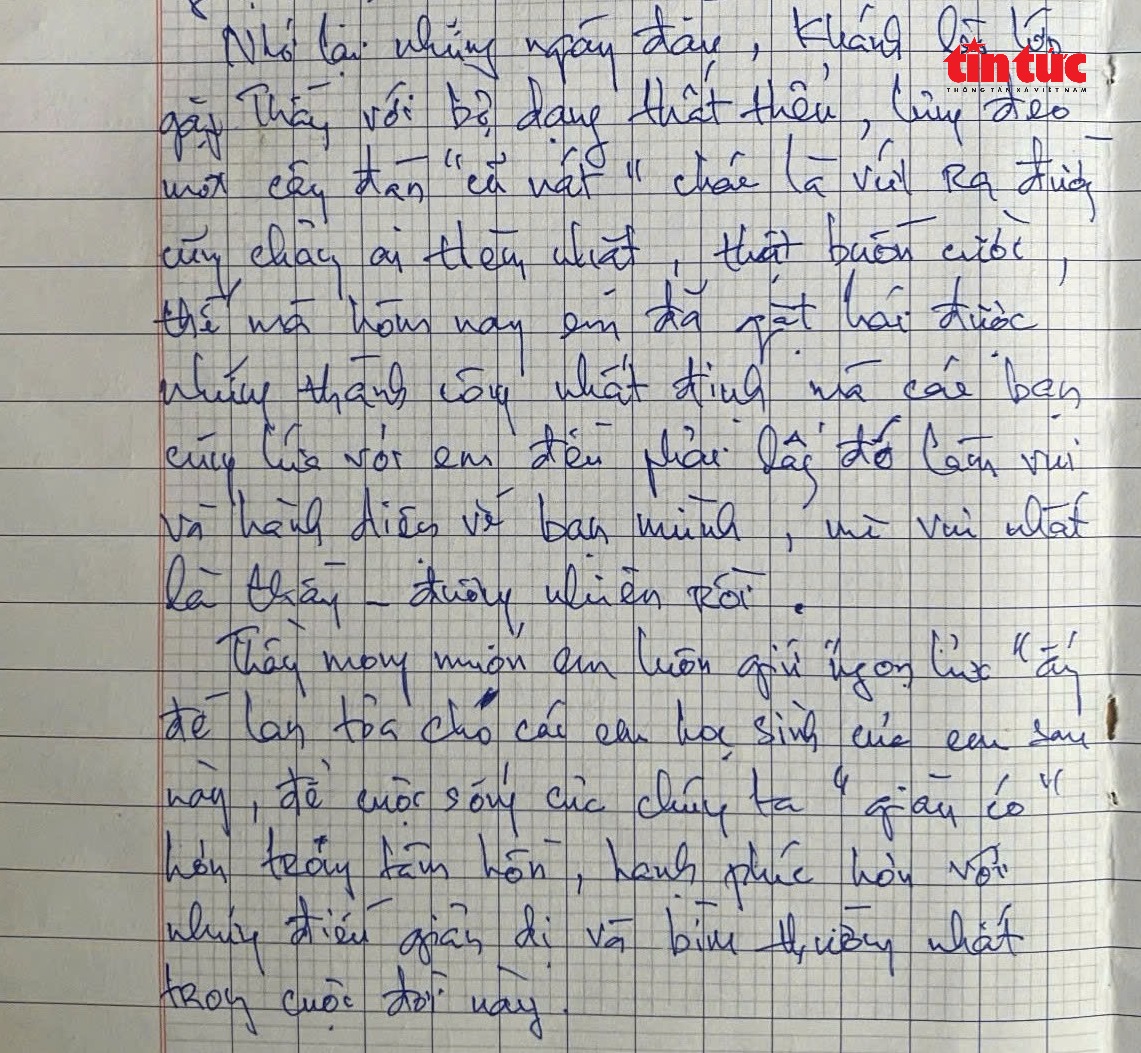 Nhớ lại những ngày đầu, Khánh lần
tin tức
THÔNG TẤN XÃ VIỆT NAM
gặp Thầy với bộ dạng thất thểu, lưng đeo
một cây đàn "cà nát" chắc là vứt Ra đường
cũng chẳng ai thèm nhặt, thật buồn cười,
thế mà hôm nay em đã gặt hái được
những thành công nhất định mà các bạn
cùng lứa với em đều phải lấy đó làm vui
và hãnh diện về bạn mình, mà vui nhất
là thầy - đương nhiên rồi.
Thầy mong muốn em luôn giữ ngọn lửa "ấy
để lan tỏa cho các em học sinh của em sau
này, để cuộc sống của chúng ta "giàu có"
hơn trong tâm hồn, hạnh phúc hơn với
những điều giản dị và bình thường nhất
trong cuộc đời này.